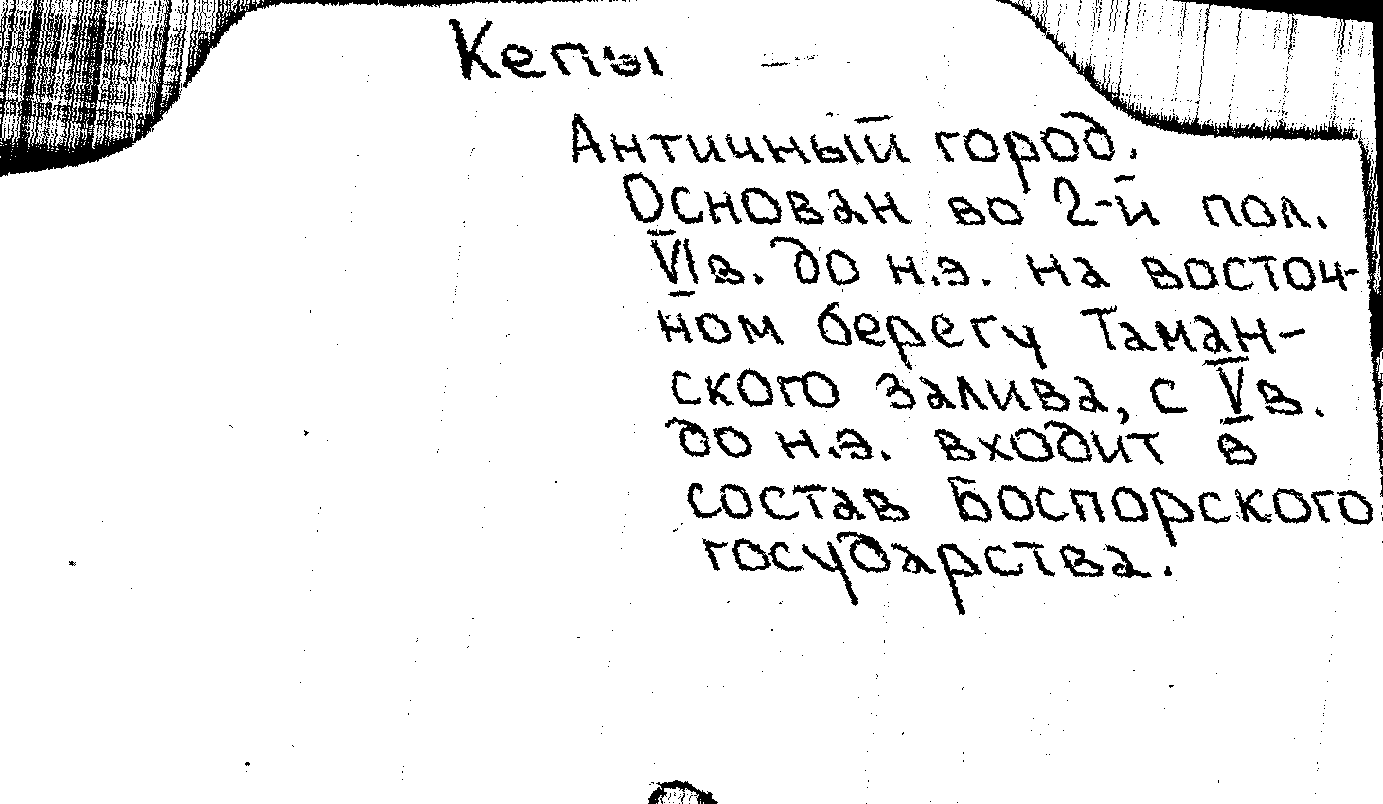 Кепы
Античный город.
Основан во 2-й пол.
VI в. до н.э. на восточ-
ном берегу Таман-
ского залива, с V в.
до н.э. входит в
состав Боспорского
государства.